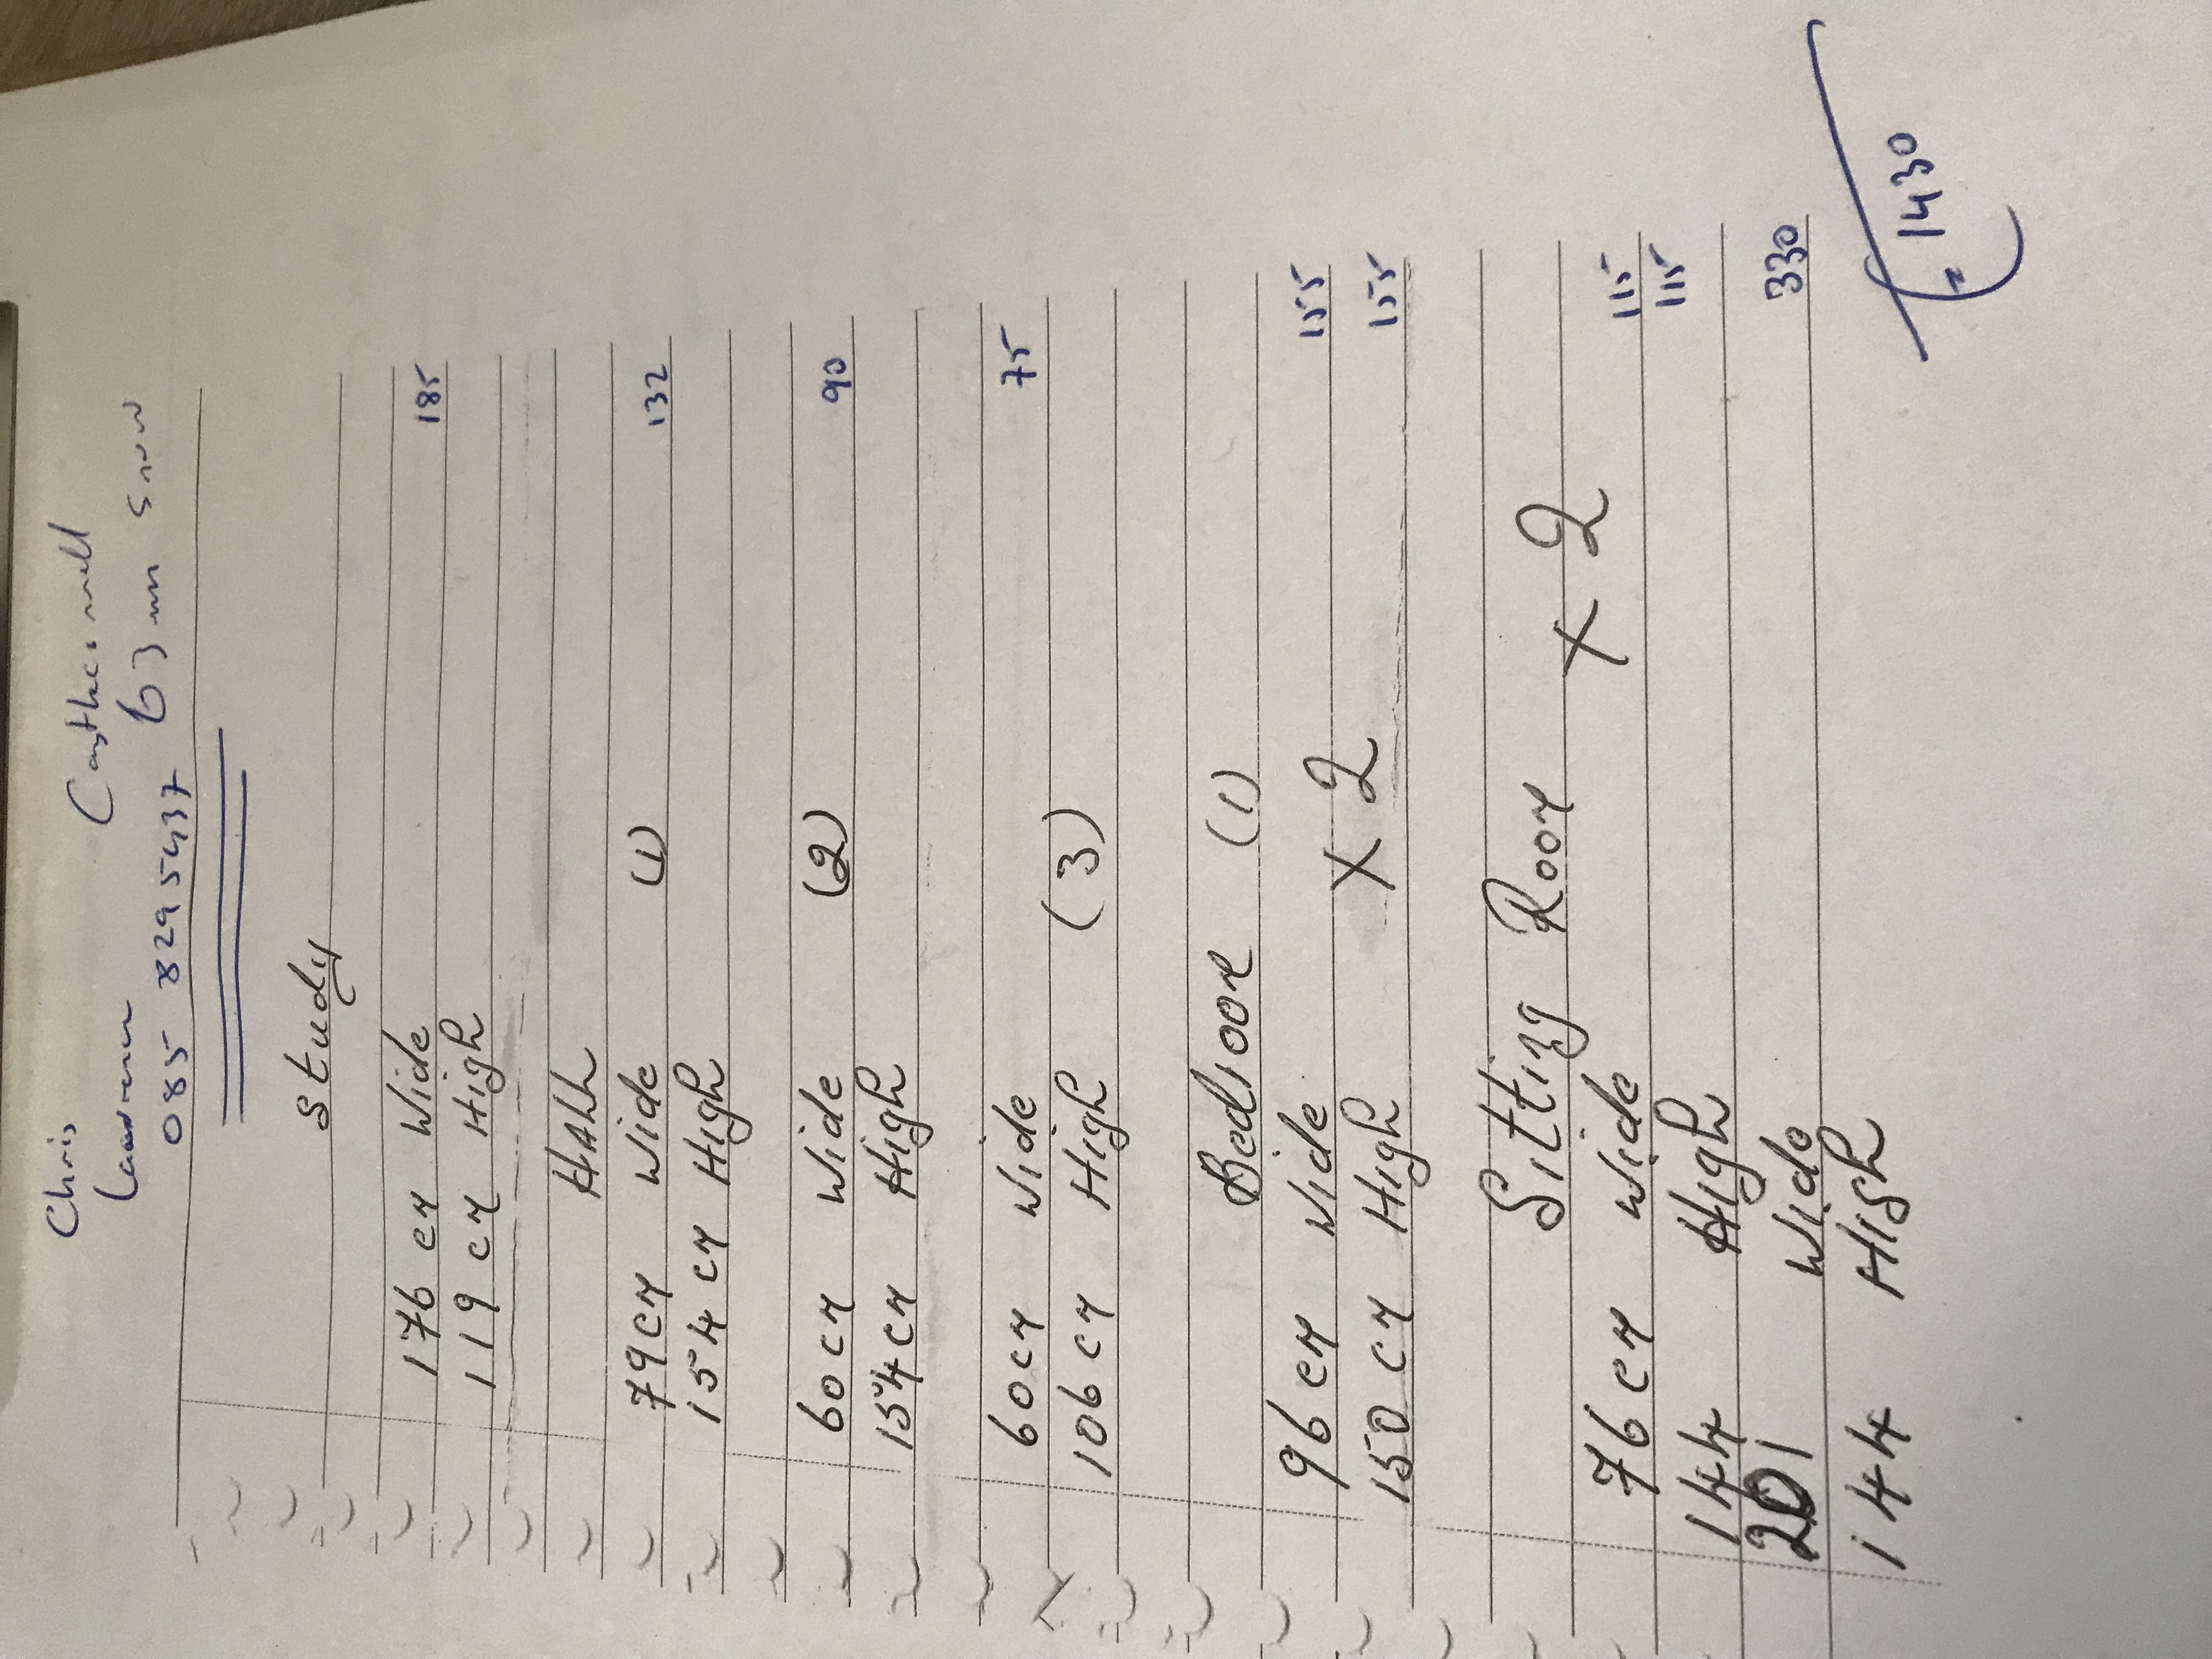 Chris
Castleconnell
085 8295437 63mm snow
Study
176 cm Wide 185
119 cm High
HALL
79cm Wide (1) 132
154 cm High
60cm Wide (2) 90
154cm High
60cm Wide 75
106 cm High (3)
Bedroom (1)
96 cm Wide 155
150 cm High X 2 155
Sitting Room X 2
76 cm Wide 115
115
144 High
201 Wide 330
144 High
= 1430